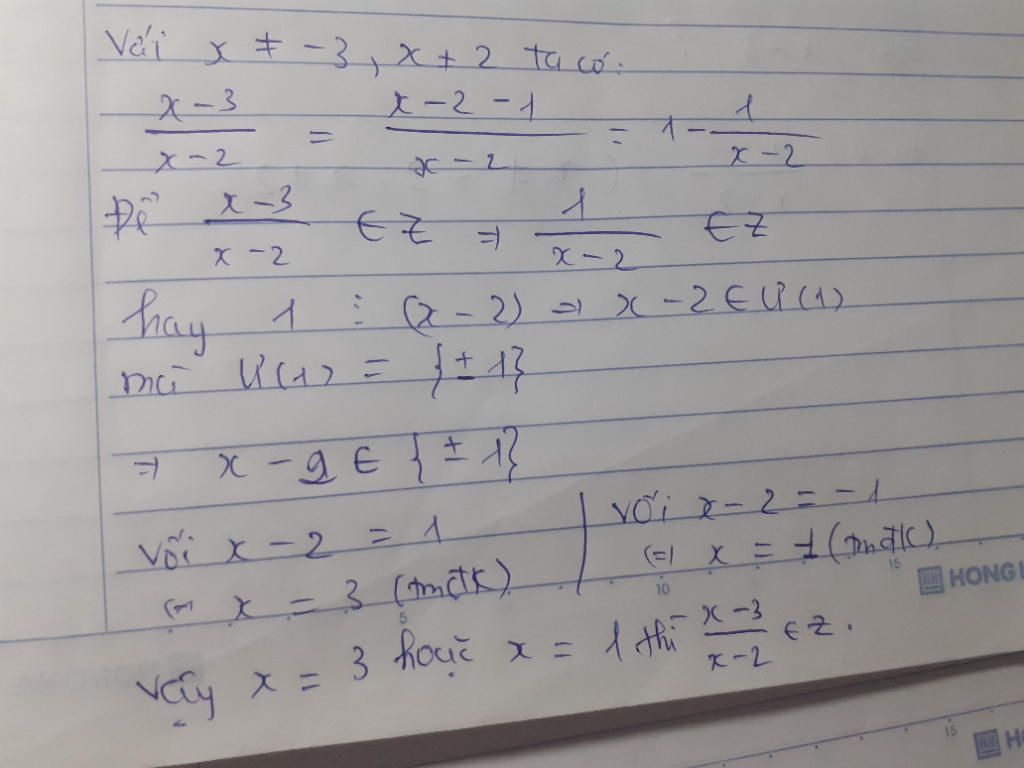 Với x ≠ -3, x ≠ 2 ta có:
\frac{x-3}{x-2} = \frac{x-2-1}{x-2} = 1 - \frac{1}{x-2}
Để \frac{x-3}{x-2} ∈ Z ⇒ \frac{1}{x-2} ∈ Z
hay 1 ⋮ (x-2) ⇒ x-2 ∈ Ư(1)
mà Ư(1) = {±1}
⇒ x-2 ∈ {±1}
Với x-2 = 1 | Với x-2 = -1
⇔ x = 3 (tmđk) | ⇔ x = 1 (tmđk)
Vậy x = 3 hoặc x = 1 thì \frac{x-3}{x-2} ∈ Z.
5 10 15
HONG H
15
HO